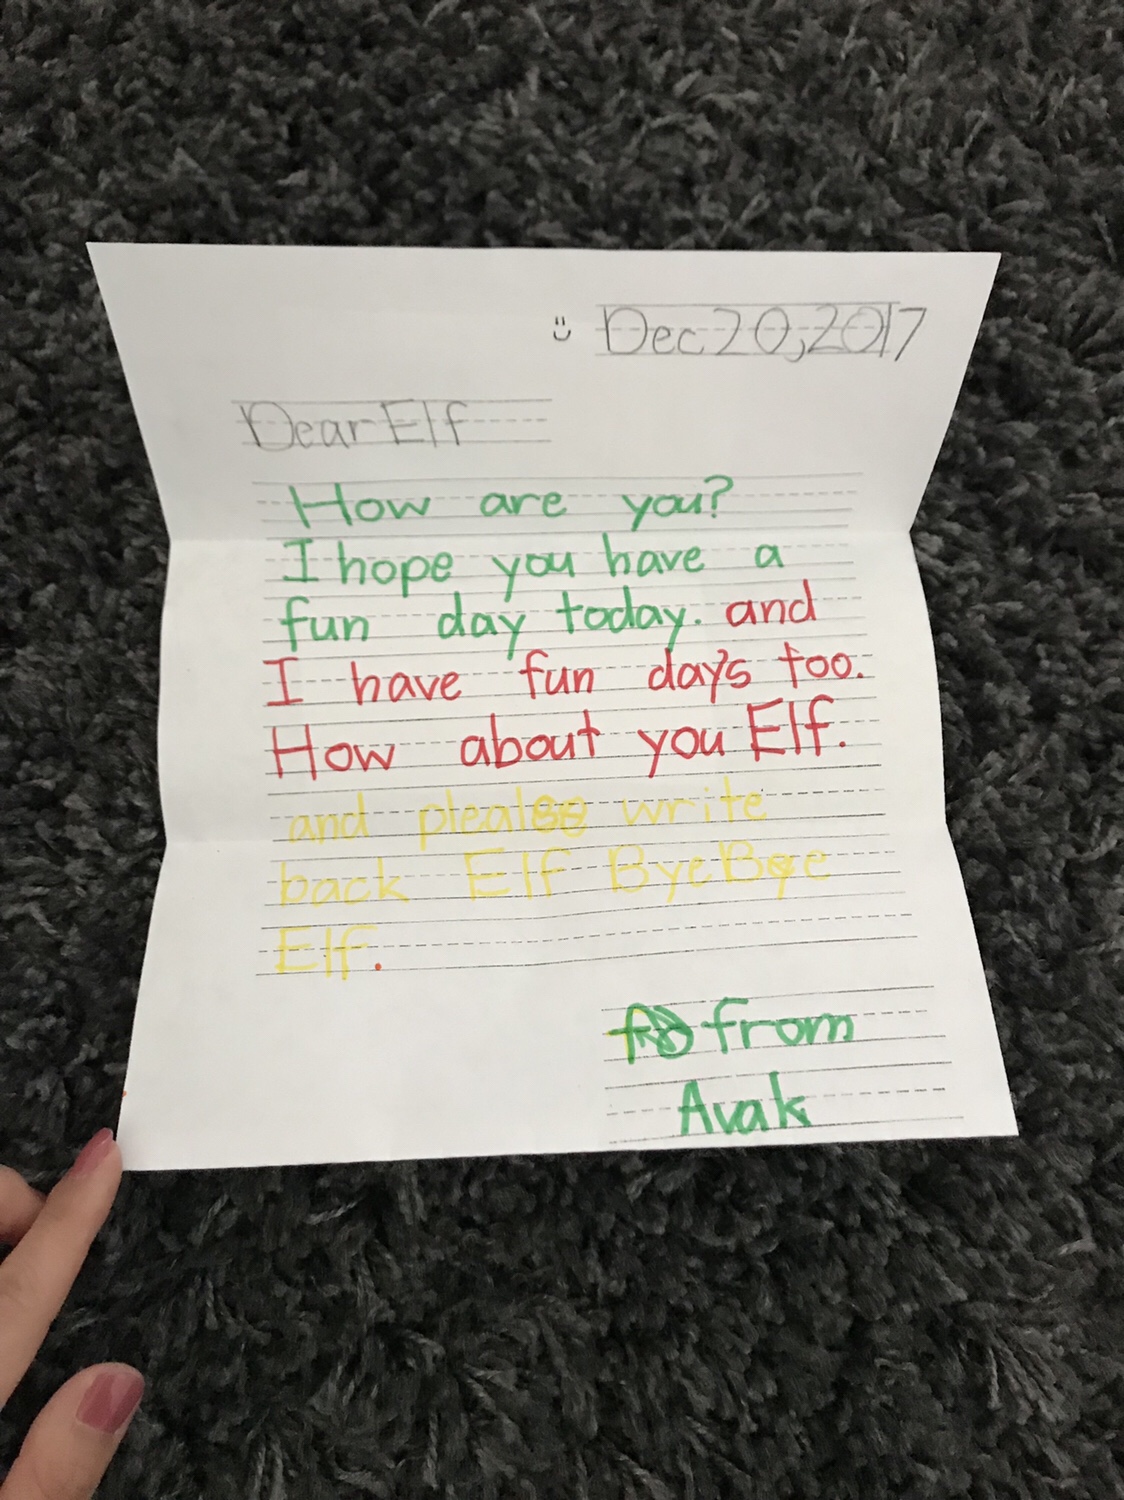 Dec 20, 2017
Dear Elf
How are you?
I hope you have a
fun day today. and
I have fun day's too.
How about you Elf.
and write
back Elf Bye Bye
Elf.
from
Avak